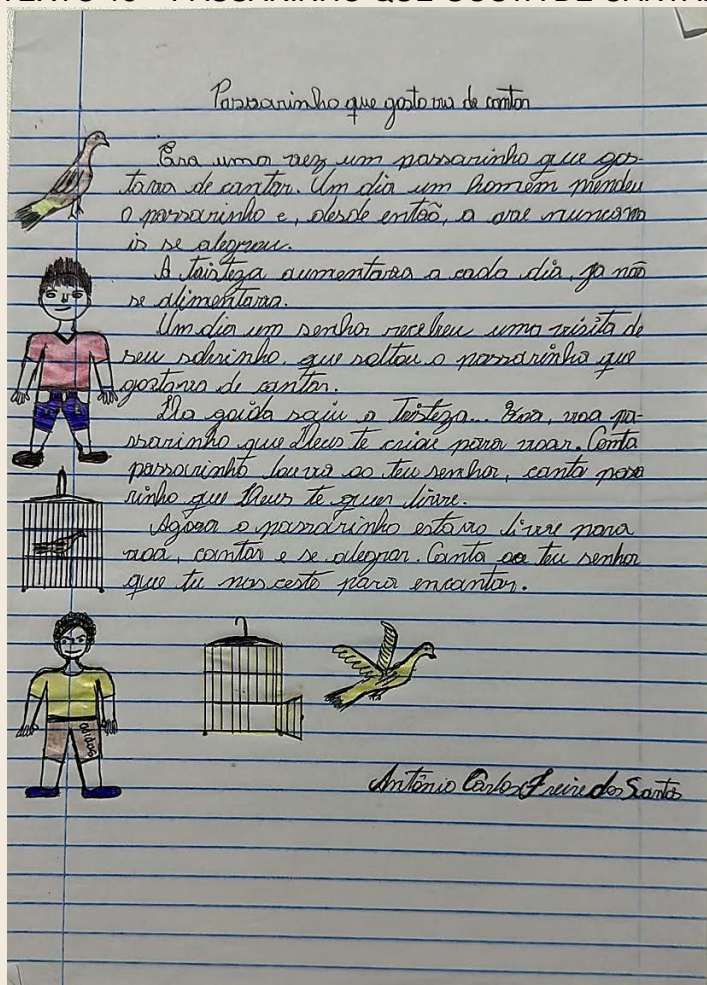 Passarinho que gostava de cantar
Era uma vez um passarinho que gos-
tava de cantar. Um dia um homem prendeu
o passarinho e, desde então, a ave nuncama
is se alegrou.
A tristeza aumentava a cada dia, ja não
se alimentava.
Um dia um senhor recebeu uma visita de
seu sobrinho, que soltou o passarinho que
gostava de cantar.
Da gaiola saiu a Tristeza... Voa, voa pa-
ssarinho que Deus te criou para voar. Canta
passarinho louva ao teu senhor, canta passa
rinho que Deus te quer livre.
Agora o passarinho estava livre para
voa, cantar e se alegrar. Canta ao teu senhor
que tu nasceste para encantar.
Antônio Carlos Freire dos Santos